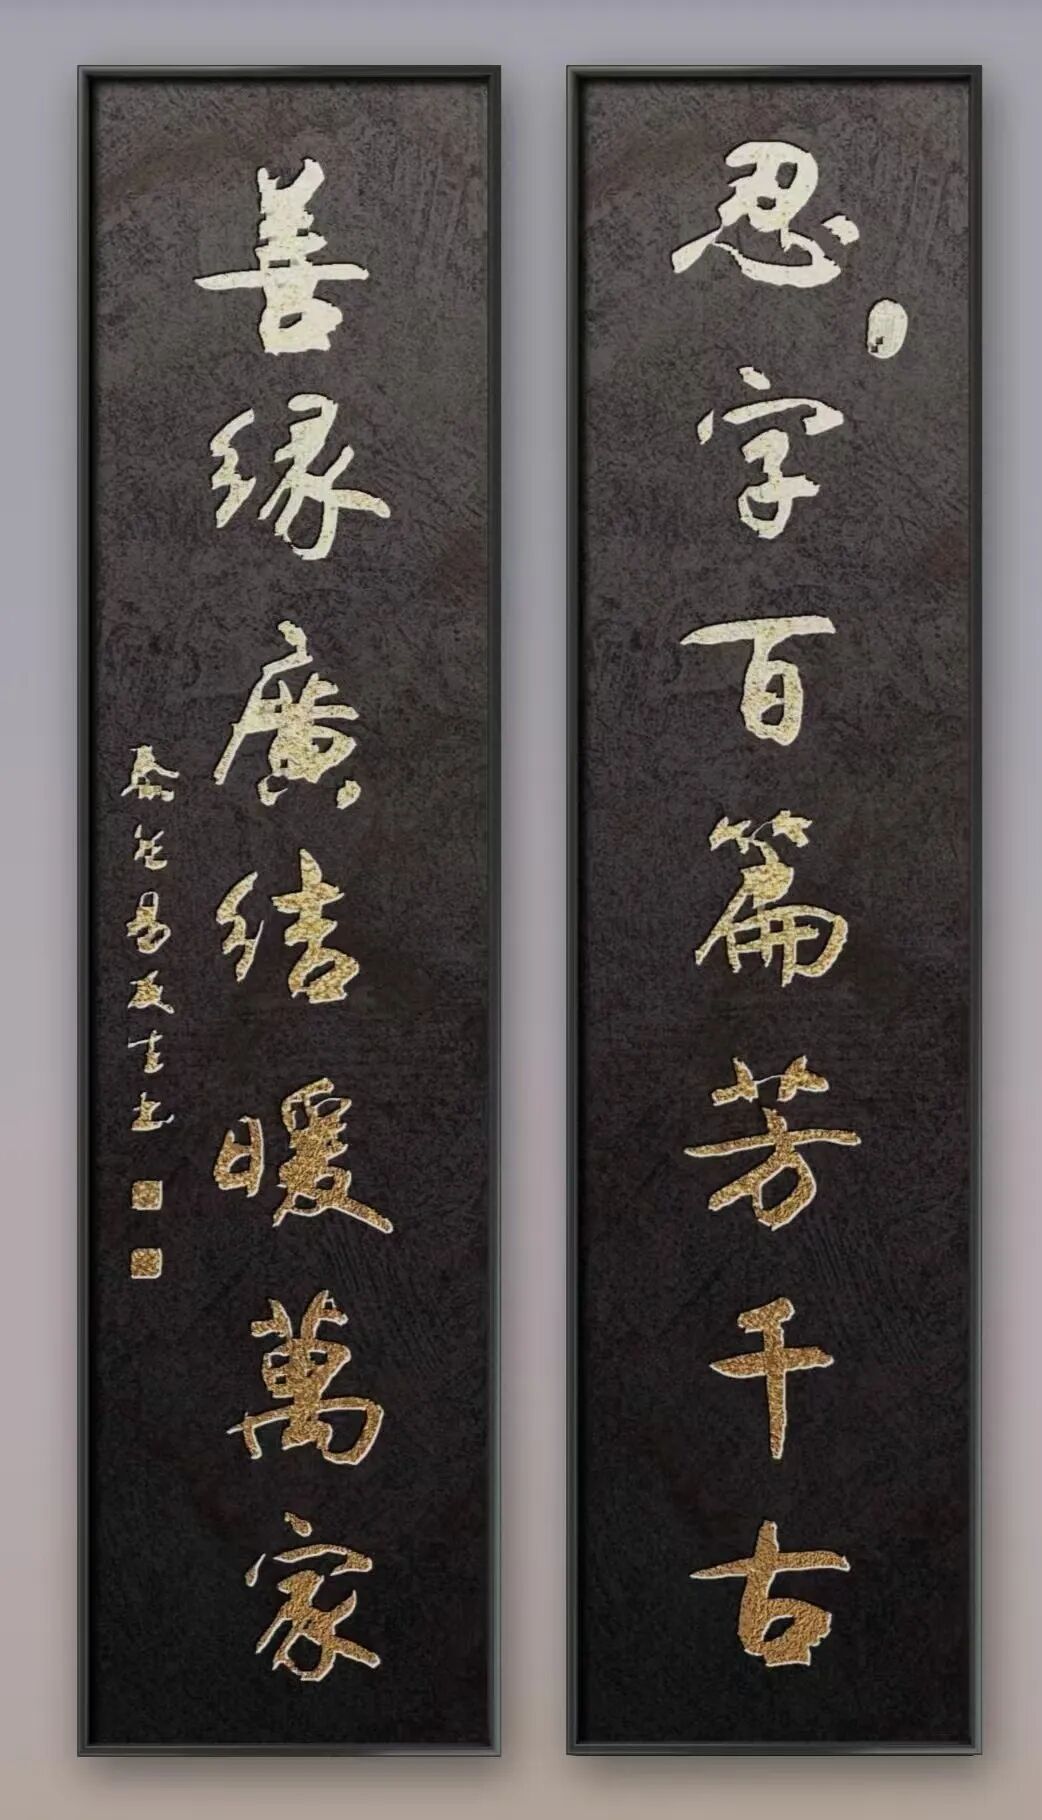 忍字百篇芳千古
善缘廣结暖萬家